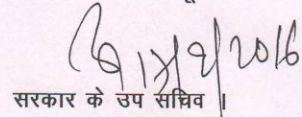 2016
सरकार के उप सचिव ।